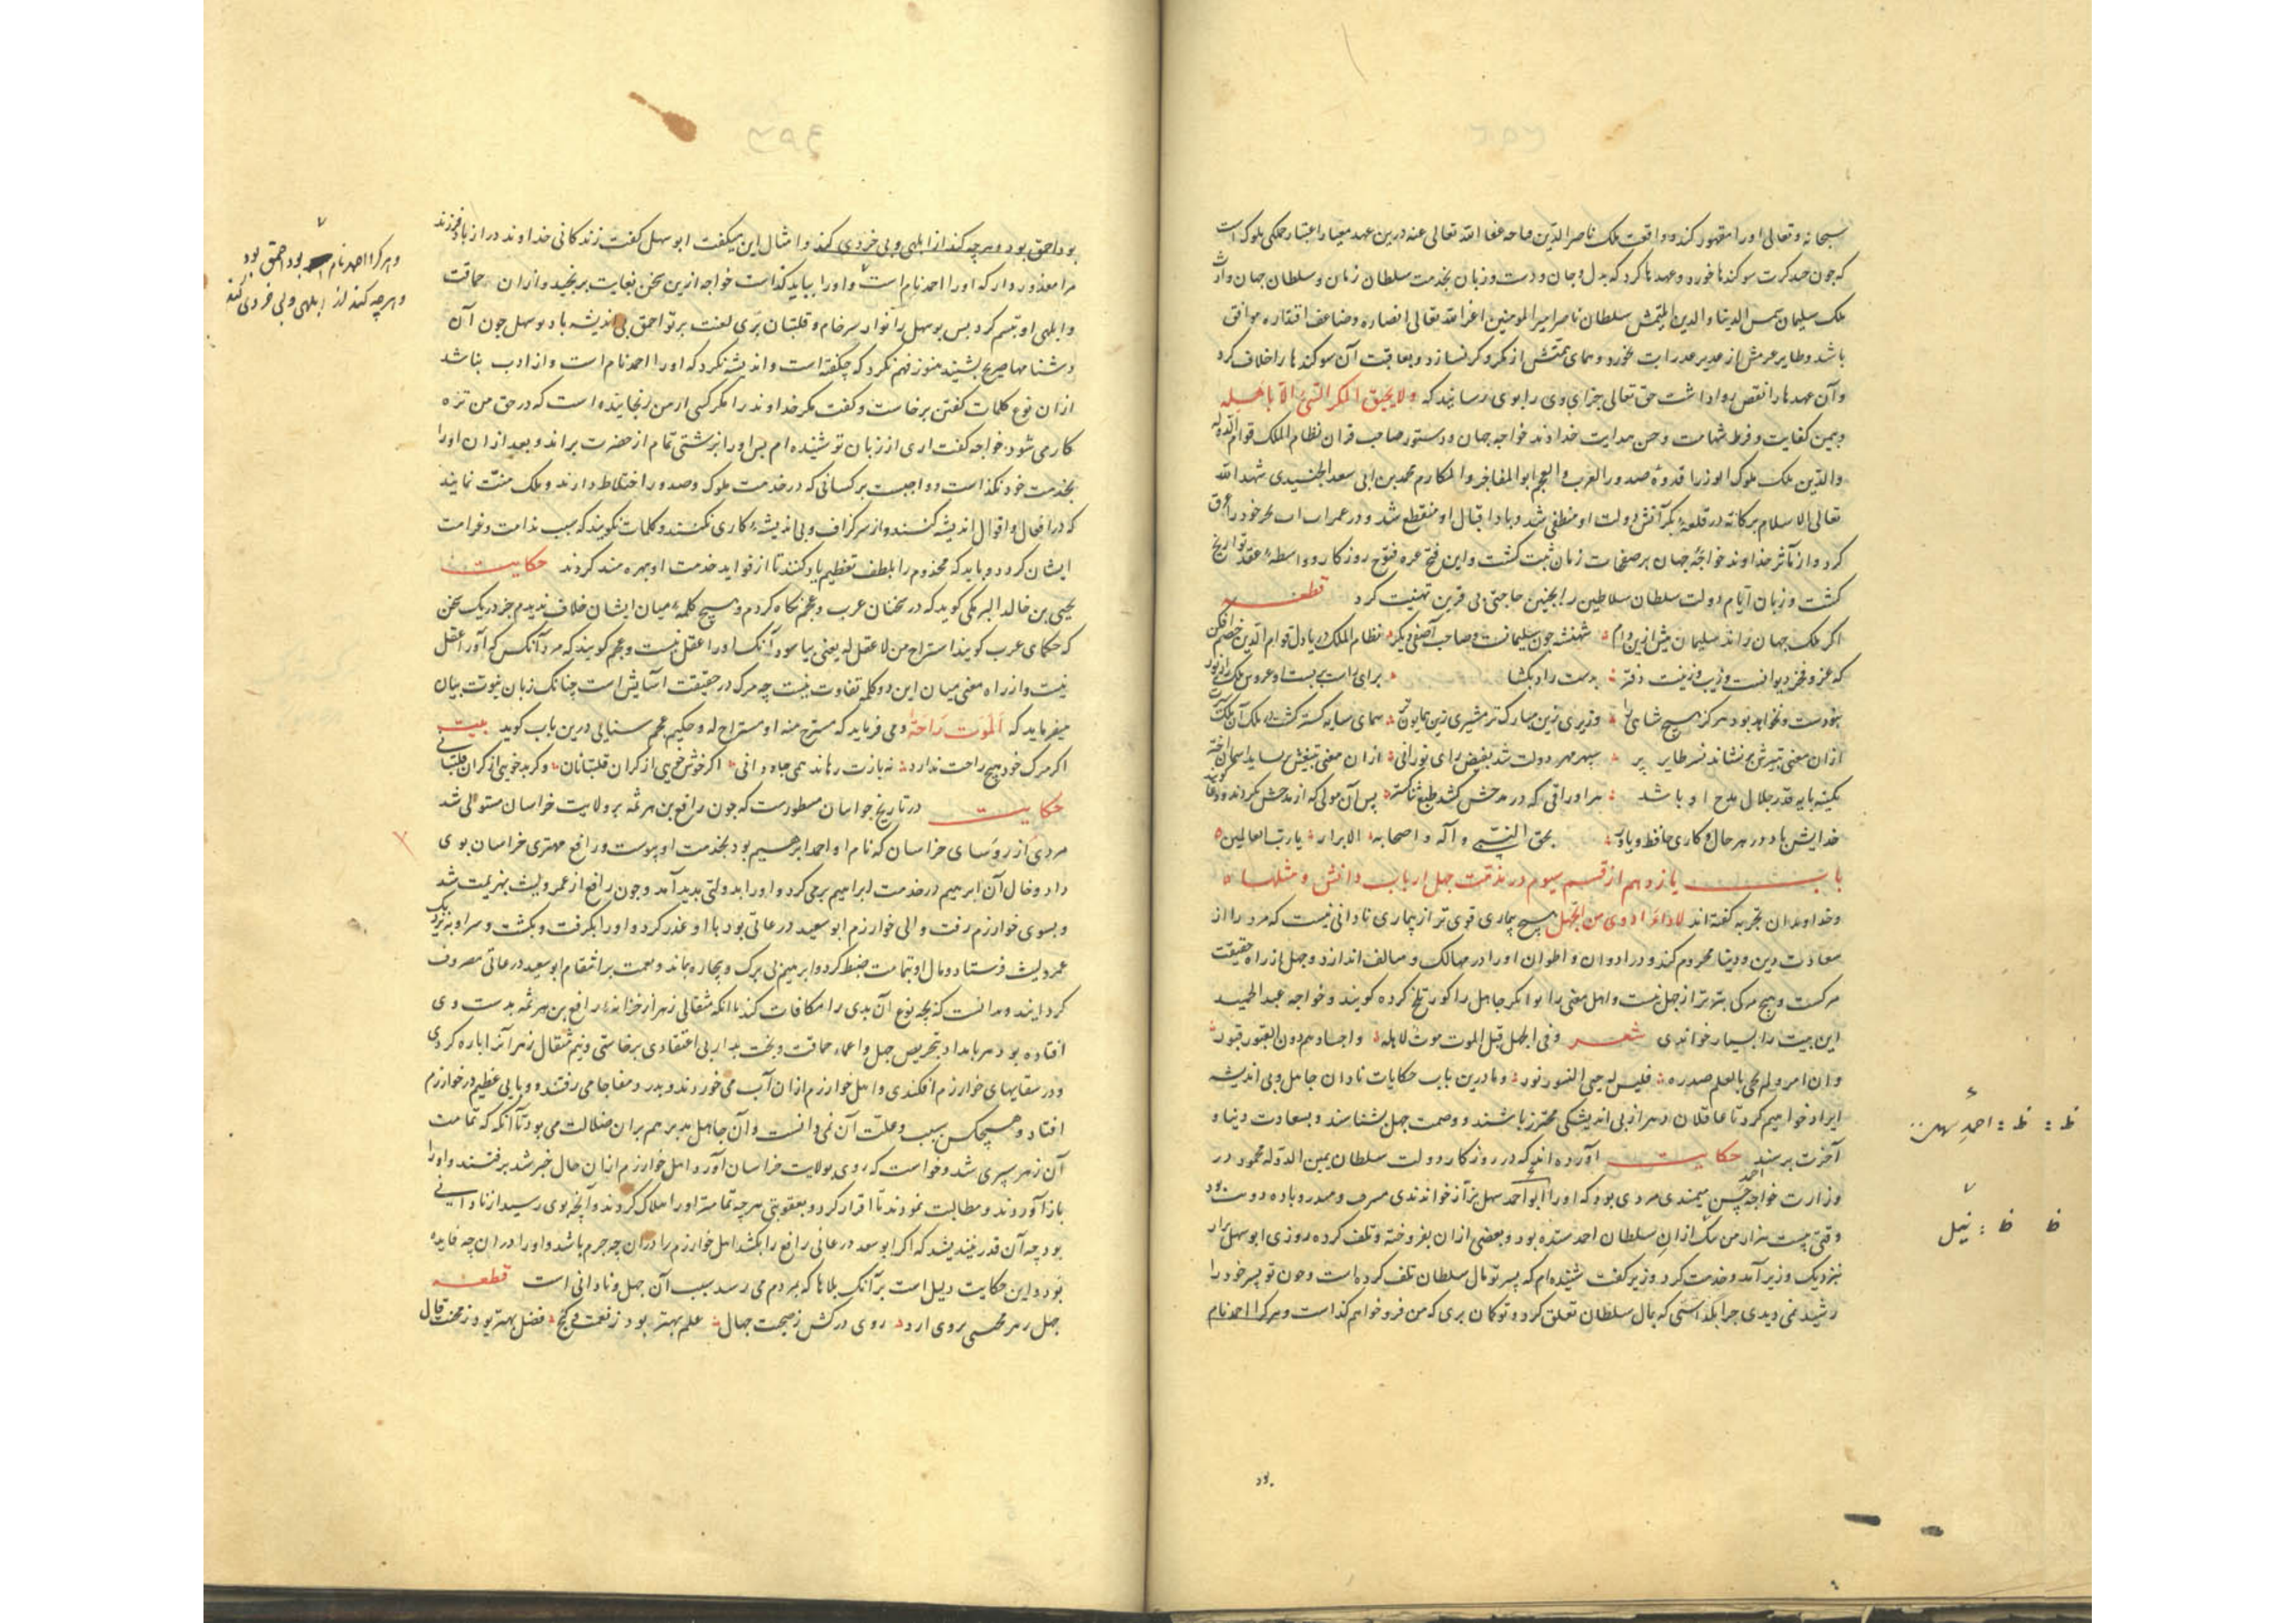 سبحانه وتعالی اورا مقهور کند وواقعت ملک ناصر الدین قباجه عفا الله تعالی عنه درین عهد معیار اعتبار جملگی ملوک است
که چون چند کرت سوکندها خورد وعهدها کرد که بدل وجان ودست وزبان بخدمت سلطان زمان وسلطان جهان وارث
ملک سلیمان شمس الدنیا والدین التمش سلطان ناصر امیر المومنین اعز الله تعالی انصاره وضاعف اقتداره موافق
باشد وطایر عزمش از غدیر غدر آب نخورد وهمای همتش از مکر وکر نسازد وبعاقبت آن سوکندها را خلاف کرد
وآن عهدها را نقص روا داشت حق تعالی جزای وی را بوی رسانید که ولا یحیق المکر السیئ الا باهله
وبیمن کفایت وفرط شهامت وحسن هدایت خداوند خواجه جهان ودستور صاحب قران نظام الملک قوام الدوله
والدین ملک ملوک الوزرا قدوۀ صدور العرب والعجم ابو المفاخر والمکارم محمد بن ابی سعد الجنیدی شهد الله
تعالی الاسلام برکاته در قلعۀ بکر آتش دولت او منطفی شد وباد اقبال او منقطع شد ودر غمر آب آب بحر خود را غرق
کرد واز مآثر خداوند خواجۀ جهان بر صفحات زمان ثبت کشت واین فتح غره فتوح روزکار وواسطۀ عقد تواریخ
کشت وزبان ایام دولت سلطان سلاطین را بچنین حاجتی بی قرین تهنیت کرد قطعه
اکر ملک جهان راند سلیمان پیش ازین وام شهنشه چون سلیمانست وصاحب آصفی دیکر نظام الملک دریادل قوام الدین خصم افکن
که عز وفخر دیوانست وزیب وزینت دفتر بدست راد بکشا برای راست بربست او عروس ملک را زیور
نبودست ونخواهد بود هرکز هیچ شاهی را وزیری زین مبارک تر مشیری زین همایون تر همای سایه کستر کشت در ملک آن ملک
ازان معنی تیرش بنشاند نسر طایر پر سپهر مهر دولت شد بفیض رای نورانی ازان معنی تیغش بساید اسمان
کمینه پایه قدر جلال مدح او باشد هر اوراقی که در مدحش کشد طبع ثنا کستر پس آن مولی که از مدحش بکردند ودعا کوید
خدایش باد در هر حال وکاری حافظ ویاور بحق النبی وآله واصحابه الابرار یا رب العالمین
باب یازدهم از قسم سیوم در مذمت جهل ارباب دانش ومثلها
وخداوندان تجربه کفته اند لا داء ادوی من الجهل هیچ بیماری قوی تر از بیماری نادانی نیست که مرد را از
سعادت دین ودنیا محروم کند ودر ادوان واطوان اورا در مهالک ومتالف اندازد وجهل از راه حقیقت
مرکست وهیچ مرکی بتر تر از جهل نیست واهل معنی را بوا بکر جاهل را کور تلخ کرده کویند وخواجه عبد الحمید
این بیت را بسیار خواندی شعر وفی الجهل قبل الموت موت لاهله واجسادهم دون القبور قبور
وان امرؤ لم یحی بالعلم صدره فلیس له حتی النشور نشور وما درین باب حکایات نادان جاهل وبی اندیشه
ایراد خواهیم کرد تا عاقلان دهر از بی اندیشکی محترز باشند ووصمت جهل بشناسند وبسعادت دنیا و
آخرت برسند حکایت آورده اند که در روزکار دولت سلطان یمین الدوله محمود در
وزارت خواجه احمد حسن میمندی مردی بود که اورا ابو احمد سهل بزاز خواندندی مسرف ومبذر وباده دوست بود
وقتی بیست هزار من نیل ازان سلطان احمد ستده بود وبعضی ازان بفروخته وتلف کرده روزی ابو سهل بزاز
بنزدیک وزیر آمد وخدمت کرد وزیر کفت شنیده ام که پسر تو مال سلطان تلف کرده است وچون تو پسر خود را
رشید نمی دیدی چرا بکذاشتی که بمال سلطان تعلق کرد وتو کمان بری که من فرو خواهم کذاشت وهرکرا احمد نام
بود
ظ : ظ : احمد سهل
ظ ظ : نیل
بود احمق بود وهرچه کند از ابلهی وبی خردی کند وامثال این میکفت ابو سهل کفت زندکانی خداوند دراز باد فرزند
مرا معذور دار که اورا احمد نام است واورا بباید کذاشت خواجه ازین سخن بغایت برنجید وازان حماقت
وابلهی او تبسم کرد پس بو سهل را نواد سرخام وقلتبان پری لعنت بر تو احمق بی اندیشه باد بو سهل چون آن
دشنامها صریح بشنید هنوز فهم نکرد که چکفته است واندیشه نکرد که اورا احمد نام است واز ادب نباشد
ازان نوع کلمات کفتن برخاست وکفت مکر خداوند را مکر کسی از من رنجانیده است که در حق من تره
کار می شود خواجه کفت اری از زبان تو شنیده ام پس اورا بزشتی تمام از حضرت براند وبعد ازان اورا
بخدمت خود نکذاشت وواجبست بر کسانی که در خدمت ملوک وصدور اختلاط دارند وملک منت نمایند
که در افعال واقوال اندیشه کنند واز سر کزاف وبی اندیشۀ کاری نکنند وکلمات نکویند که سبب ندامت وغرامت
ایشان کردد وباید که مخدوم را بلطف تعظیم یاد کنند تا از فواید خدمت او بهره مند کردند حکایت
یحیی بن خالد البرمکی کوید که در سخنان عرب وعجم نکاه کردم وهیچ کلمۀ میان ایشان خلاف ندیدم جز در یک سخن
که حکمای عرب کویند استراح من لا عقل له یعنی بیاسود آنک اورا عقل نیست وعجم کویند که مرد آنکس که اورا عقل
نیست واز راه معنی میان این دو کلمه تفاوت نیست چه مرک در حقیقت آسایش است چنانک زبان نبوت بیان
میفرماید که الموت راحة ومی فرماید که مستریح منه او مستراح له وحکیم عجم سنایی درین باب کوید بیت
اکر مرک خود هیچ راحت ندارد نه بازت رهاند همی جاودانی اکر خوش خویی از کران قلتبانان وکر بدخویی از کران قلتبانی
حکایت در تاریخ خراسان مسطورست که چون رافع بن هرثمه بر ولایت خراسان مستولی شد
مردی از روسای خراسان که نام او احمد ابرهیم بود بخدمت او پیوست ورافع مهتری خراسان بوی
داد وخال آن ابرهیم در خدمت ابراهیم برمی کرد واورا بدولتی پدید آمد وچون رافع از عمرو لیث بهزیمت شد
وبسوی خوارزم رفت والی خوارزم ابو سعید درعانی بود با او غدر کرد واورا بکرفت وبکشت وسر او بنزدیک
عمرو لیث فرستاد ومال او بتمامت ضبط کرد وابرهیم بی برک وبیچاره بماند وهمت بر انتقام ابو سعید درعانی مصروف
کردانید وندانست که بچه نوع آن بدی را مکافات کند تا انکه مثقالی زهر از خزانۀ رافع بن هرثمه بدست وی
افتاده بود هر بامداد بتحریص جهل واعماء حماقت وبخت بد از بی اعتقادی برخاستی ونیم مثقال زهر آنرا پاره کردی
ودر سقایهای خوارزم افکندی واهل خوارزم ازان آب می خوردند وبدرد مفاجا می رفتند ووبایی عظیم در خوارزم
افتاد وهیچکس سبب وعلت آن نمی دانست وآن جاهل مدبر هم بران ضلالت می بود تا آنکه که تمامت
آن زهر سپری شد وخواست که روی بولایت خراسان آورد اهل خوارزم ازان حال خبر شد برفتند واورا
باز آوردند ومطالبت نمودند تا اقرار کرد وبعقوبتی هرچه تمامتر اورا هلاک کردند وآنچه بوی رسید از نادانی
بود چه آن قدر نیندیشد که اکر ابو سعد درعانی رافع را بکشد اهل خوارزم را دران چه جرم باشد واورا دران چه فایده
بود واین حکایت دلیل است بر آنک بلاها که بمردم می رسد سبب آن جهل ونادانی است قطعه
جهل رهر محسی بروی ارد روی درکش ز صحبت جهال علم بهتر بود ز نعمت وکنج فضل بهتر بود ز محنت قال
وهرکرا احمد نام بود احمق بود
وهرچه کند از ابلهی وبی خردی کند